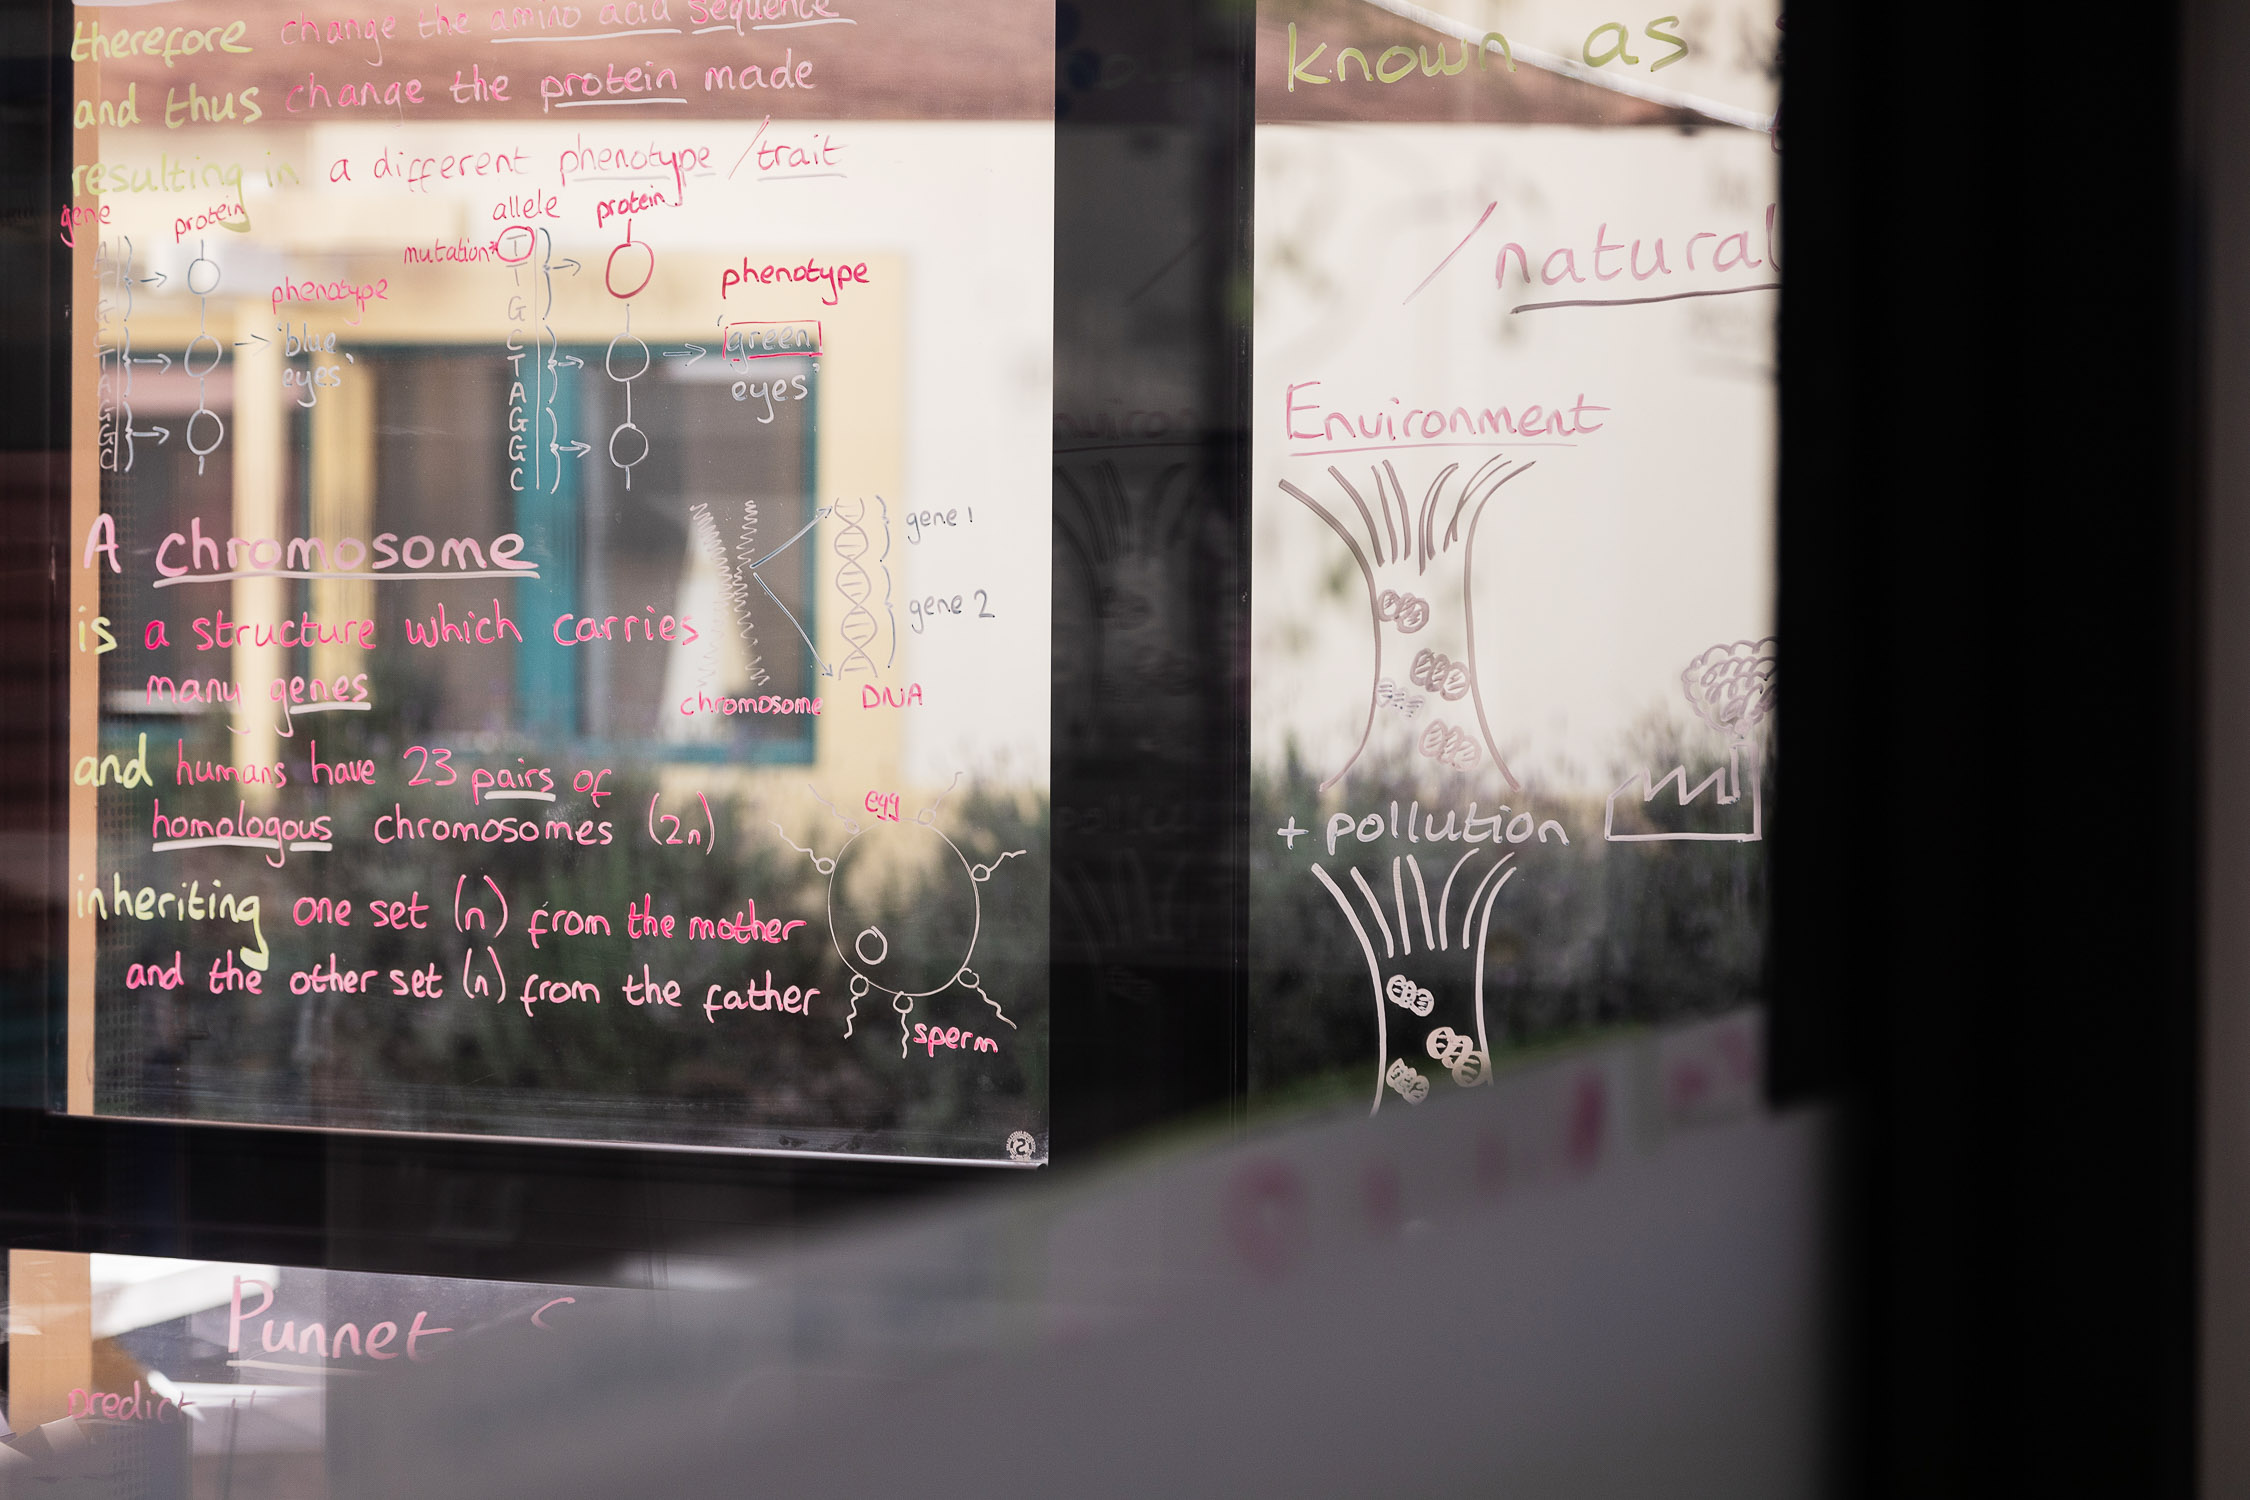 therefore change the amino acid sequence
and thus change the protein made
resulting in a different phenotype / trait
gene protein allele protein
mutation T
T
G
C
T
A
G
G
C
phenotype
'blue eyes'
phenotype
'green eyes'
A chromosome
is a structure which carries
many genes
gene 1
gene 2
chromosome DNA
and humans have 23 pairs of
homologous chromosomes (2n)
inheriting one set (n) from the mother
and the other set (n) from the father
egg
sperm
Punnet
predict
known as
/ natural
Environment
+ pollution